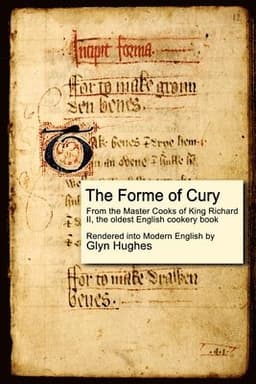 Incipit forma.
ffor to make groun
den benes.
Take benes & drye hem
an ovene & hulle
The Forme of Cury
From the Master Cooks of King Richard
II, the oldest English cookery book
Rendered into Modern English by
Glyn Hughes
ffor to make drawen
benes.